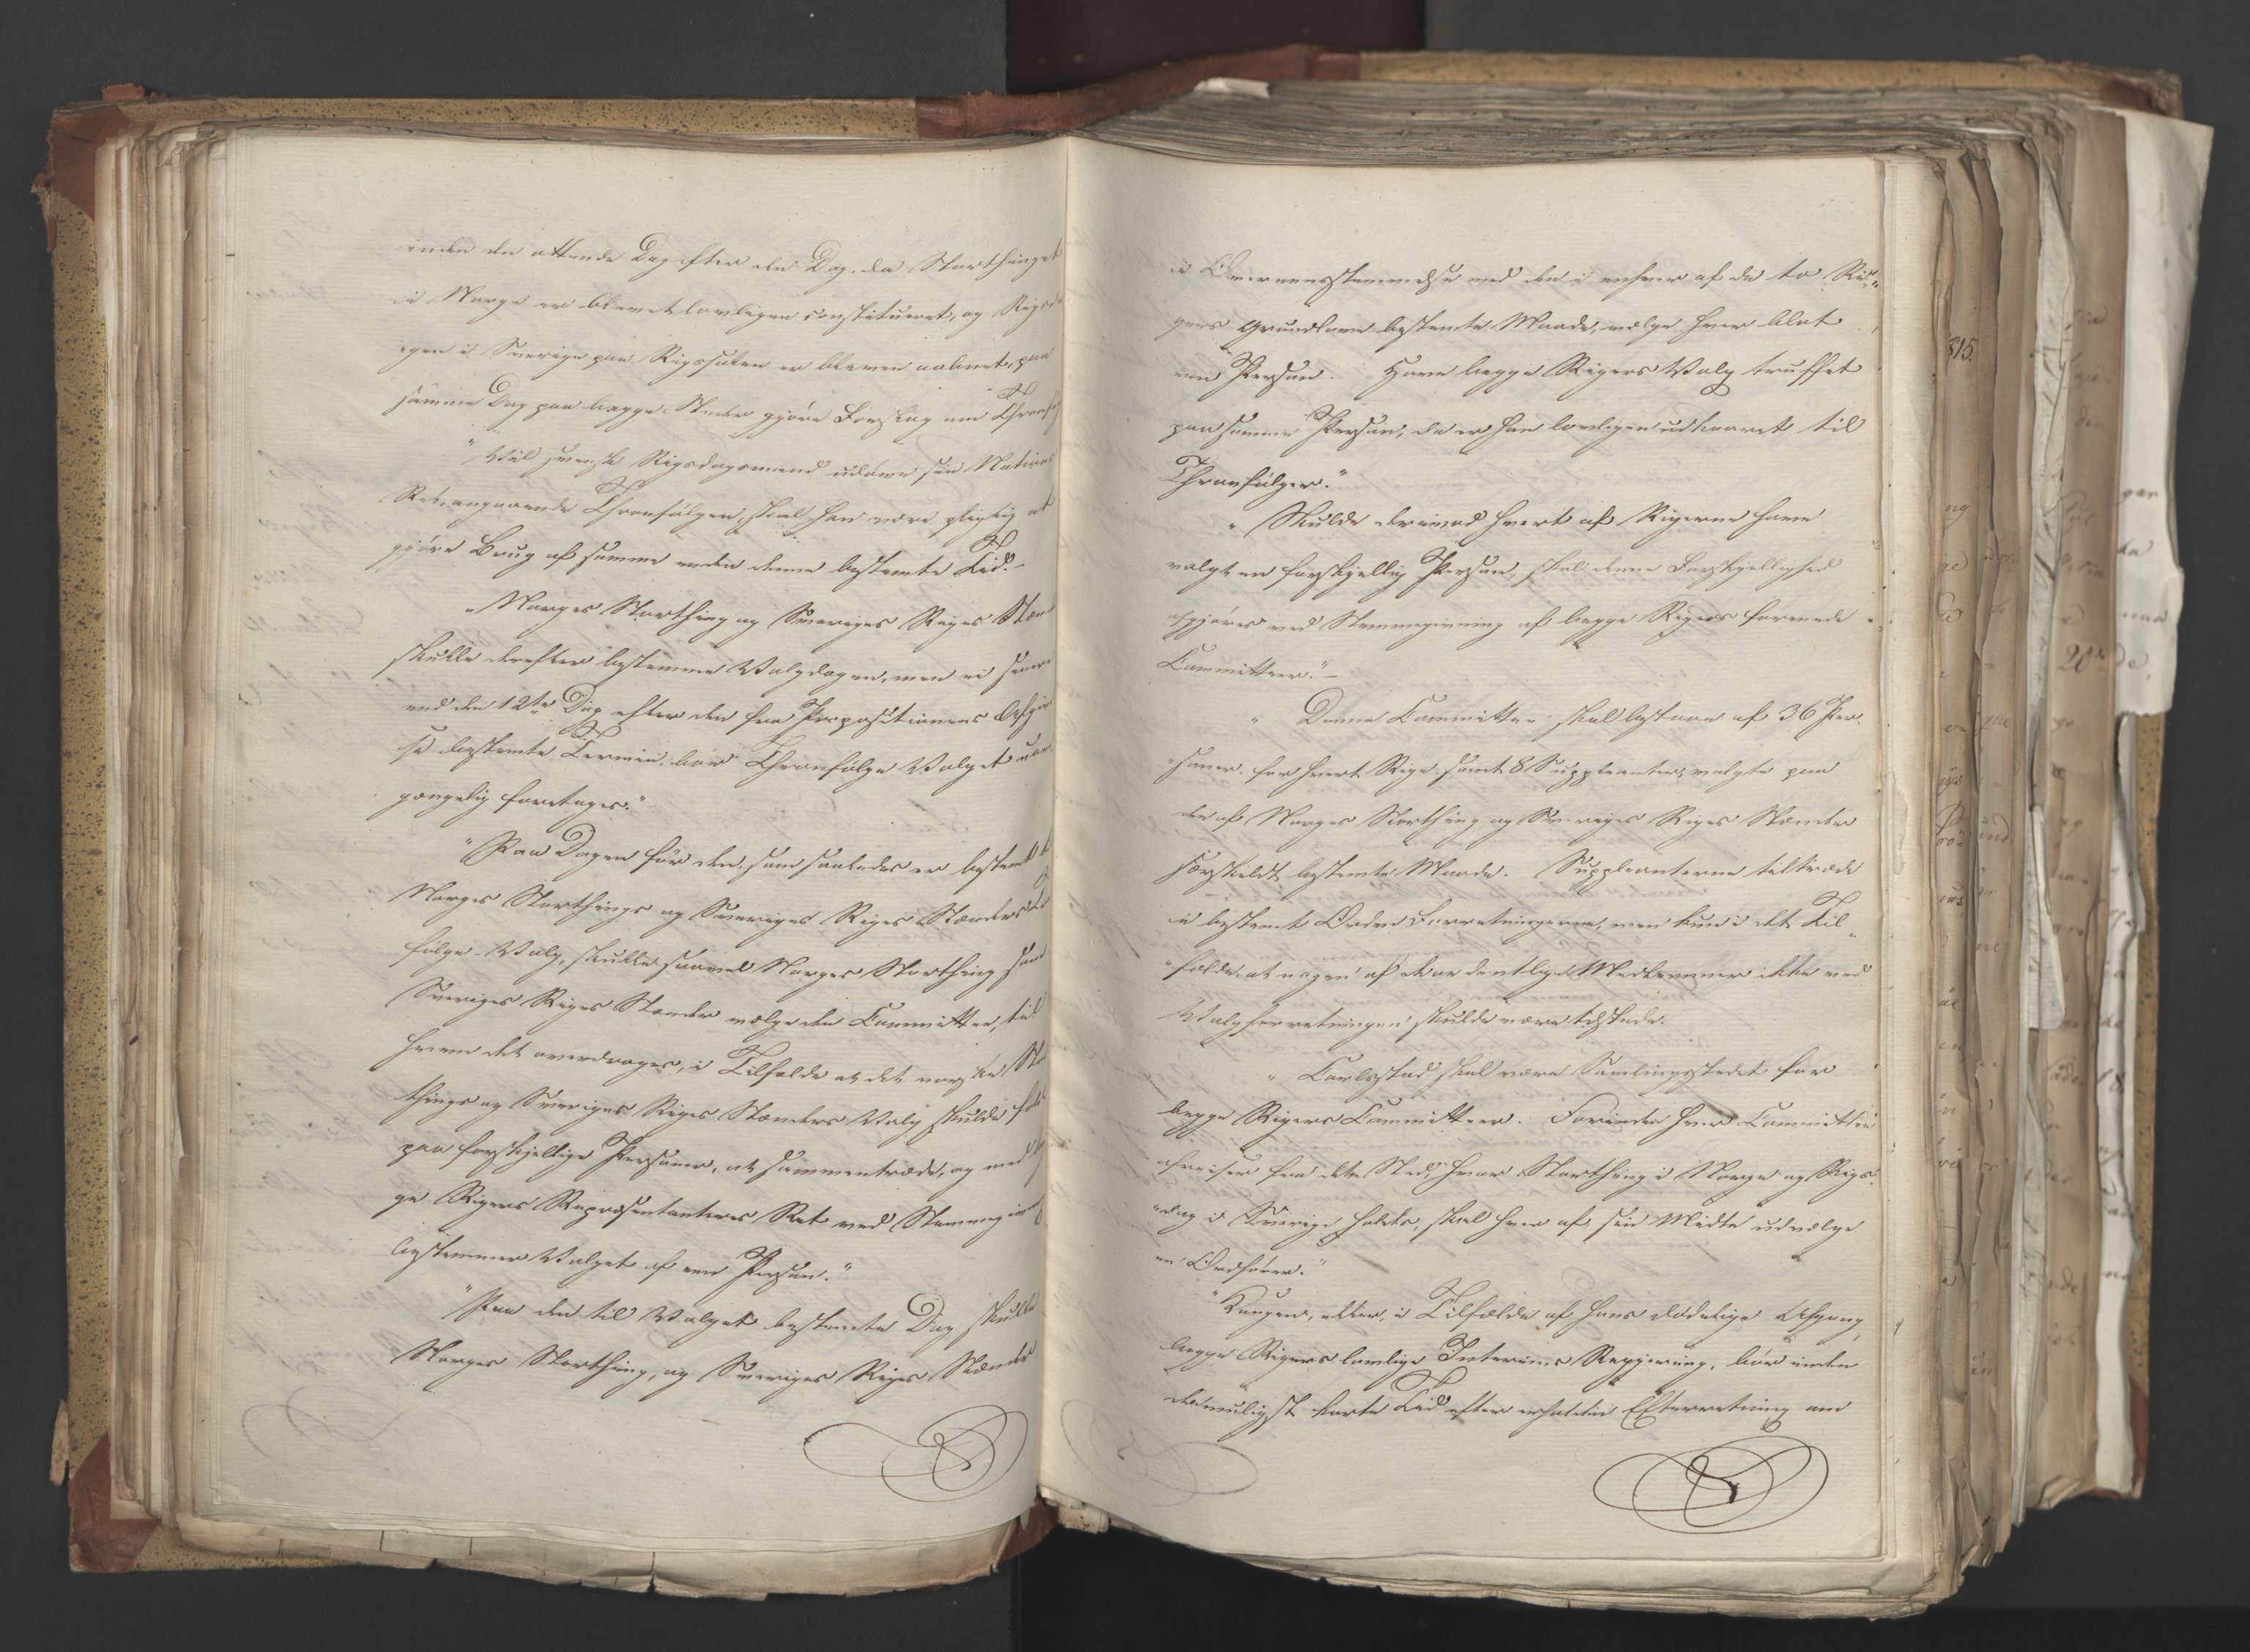 inden den ottende Dag efter den Dag, da Storthinget
i Norge er blevet lovligen constitueret, og Rigsd
gen i Sverige paa Rigssalen er bleven aabnet, paa
samme Dag paa begge Steder gjöre Forslag om Thronföl
"Vil svensk Rigsdagsmand udöve sin Nations
Ret, angaaende Thronfölgen, skal han være pligtig at
gjöre Brug af samme inden denne bestemte Tid.-
"Norges Storthing og Sveriges Riges Stæn
skulle derefter bestemme Valgdagen, men ei senere
end den 12te Dag efter den fra Propositionens Afgi
se bestemte Termin, bör Thronfölge Valget uom
gængelig foretages."
"Paa Dagen för den, som saaledes er bestemt t
Norges Storthings og Sveriges Riges Stænders T
fölge-Valg, skulle saavel Norges Storthing som
Sveriges Riges Stænder vælge den Committee, til
hvem det overdrages, i Tilfælde at det norske Stor
things og Sveriges Riges Stænders Valg skulde fald
paa forskjellige Personer, at sammentræde, og med beg
ge Rigers Repræsentanteres Ret ved Stemmegivn
bestemmer Valget af een Person."
"Paa den til Valget bestemte Dag skulle
Norges Storthing, og Sveriges Riges Stænder
i Overeensstemmelse med den i enhver af de to Ri"
gers Grundlove bestemte Maade, vælge hver blot
een Person. Have begge Rigers Valg truffet
paa samme Person, da er han lovligen udkaaret til
Thronfölger."
"Skulde derimod hvert af Rigerne have
valgt en forskjellig Person, skal denne Forskjellighed
afgjöres ved Stemmegivning af begge Rigers forenede
Committeer."-
" Denne Committee skal bestaae af 36 Per-
"soner, for hvert Rige, samt 8 Suppleanter, valgte paa
den af Norges Storthing og Sveriges Riges Stænder
særskildt bestemte Maade. Suppleanterne tiltræde
i bestemt Orden Forretningerne, men kun i det Til"
"fælde, at nogen af de ordentlige Medlemmer ikke ved
Valgforretningen skulde være tilstede.
" Carlsstad skal være Samlingsstedet for
begge Rigers Committeer. Forinden hver Committee
afreiser fra dette Sted, hvor Storthing i Norge og Rigs-
"dag i Sverige holdes, skal hver af sin Midte udvælge
en Ordförer."
"Kongen, eller, i Tilfælde af hans dödelige Afgang,
begge Rigers lovlige Interims Regjering, bör inden
den muligst korte Tid efter erholden Efterretning om
815.
20de